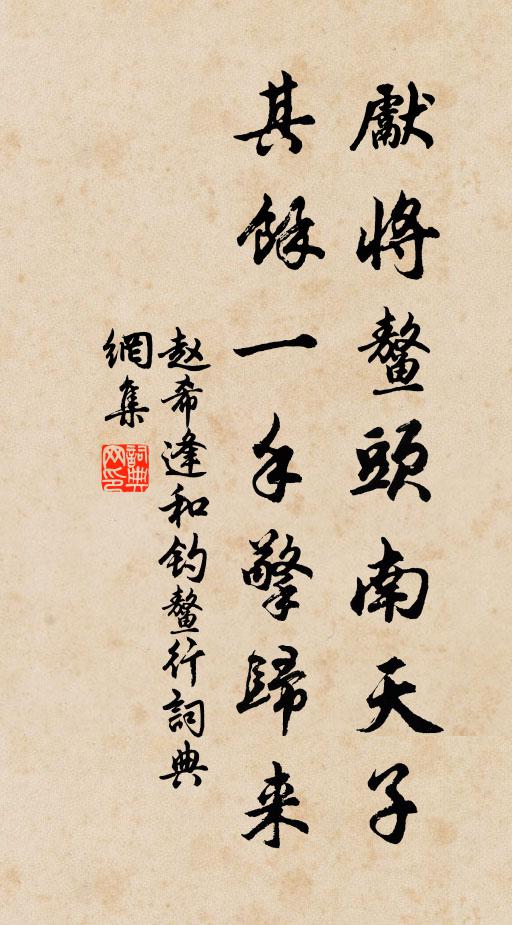 獻將鼇頭南天子
其餘一手擎歸来
赵希逢和钓鼇行詞典
網集
詞典网印